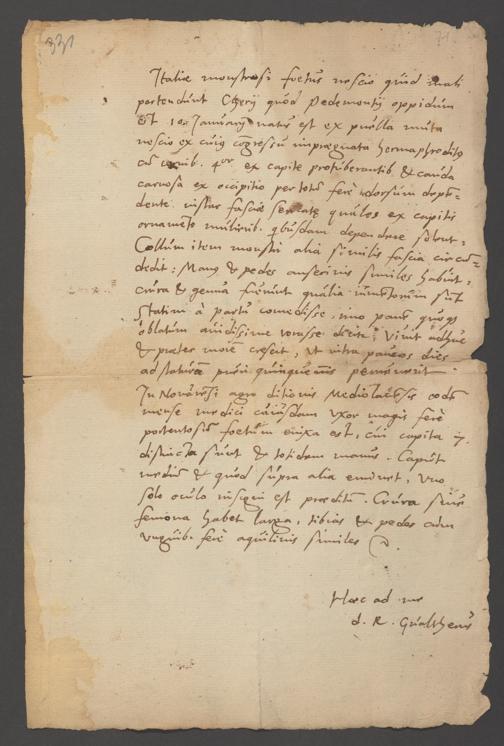 331
71
Italiæ monstrosi foetus nescio quid mali
portendunt Cherij quod Pedemontij oppidum
est 10 Januarij natus est ex puella muta
nescio ex cuius cōgressu impraegnata hermaphroditus
cū cornib. 4or ex capite protuberantib. & cauda
carnosa ex occipitio per totū ferè dorsum
dente instar fasciæ quales ex capitis
ornamēto mulirib. quibusdam dependere solent.
Collum item monstri alia similis fascia circū-
dedit: Manus & pedes anserinis similes habuit,
crura & genua fuerunt qualia iumentorum sunt
statim à partu comedisse, imo panē quoque
oblatum auidissime vorasse dicitur. Viuit adhuc
& præter morē crescit, ut intra paucos dies
ad staturā pueri quinquennis peruenerit.
In Nouarēsi agro ditionis Mediolanēsis eodē
mense medici cuiusdam vxor magis ferè
portentosum foetum enixa est, cui capita
distincta sunt & totidem manus. Caput
medium & quod supra alia eminet, vno
solo oculo insigni est præditum. Crura siue
femora habet larga, tibias & pedes cum
vnguib. ferè aquilinis similes.
Hæc ad me
d. R. Gualtherus